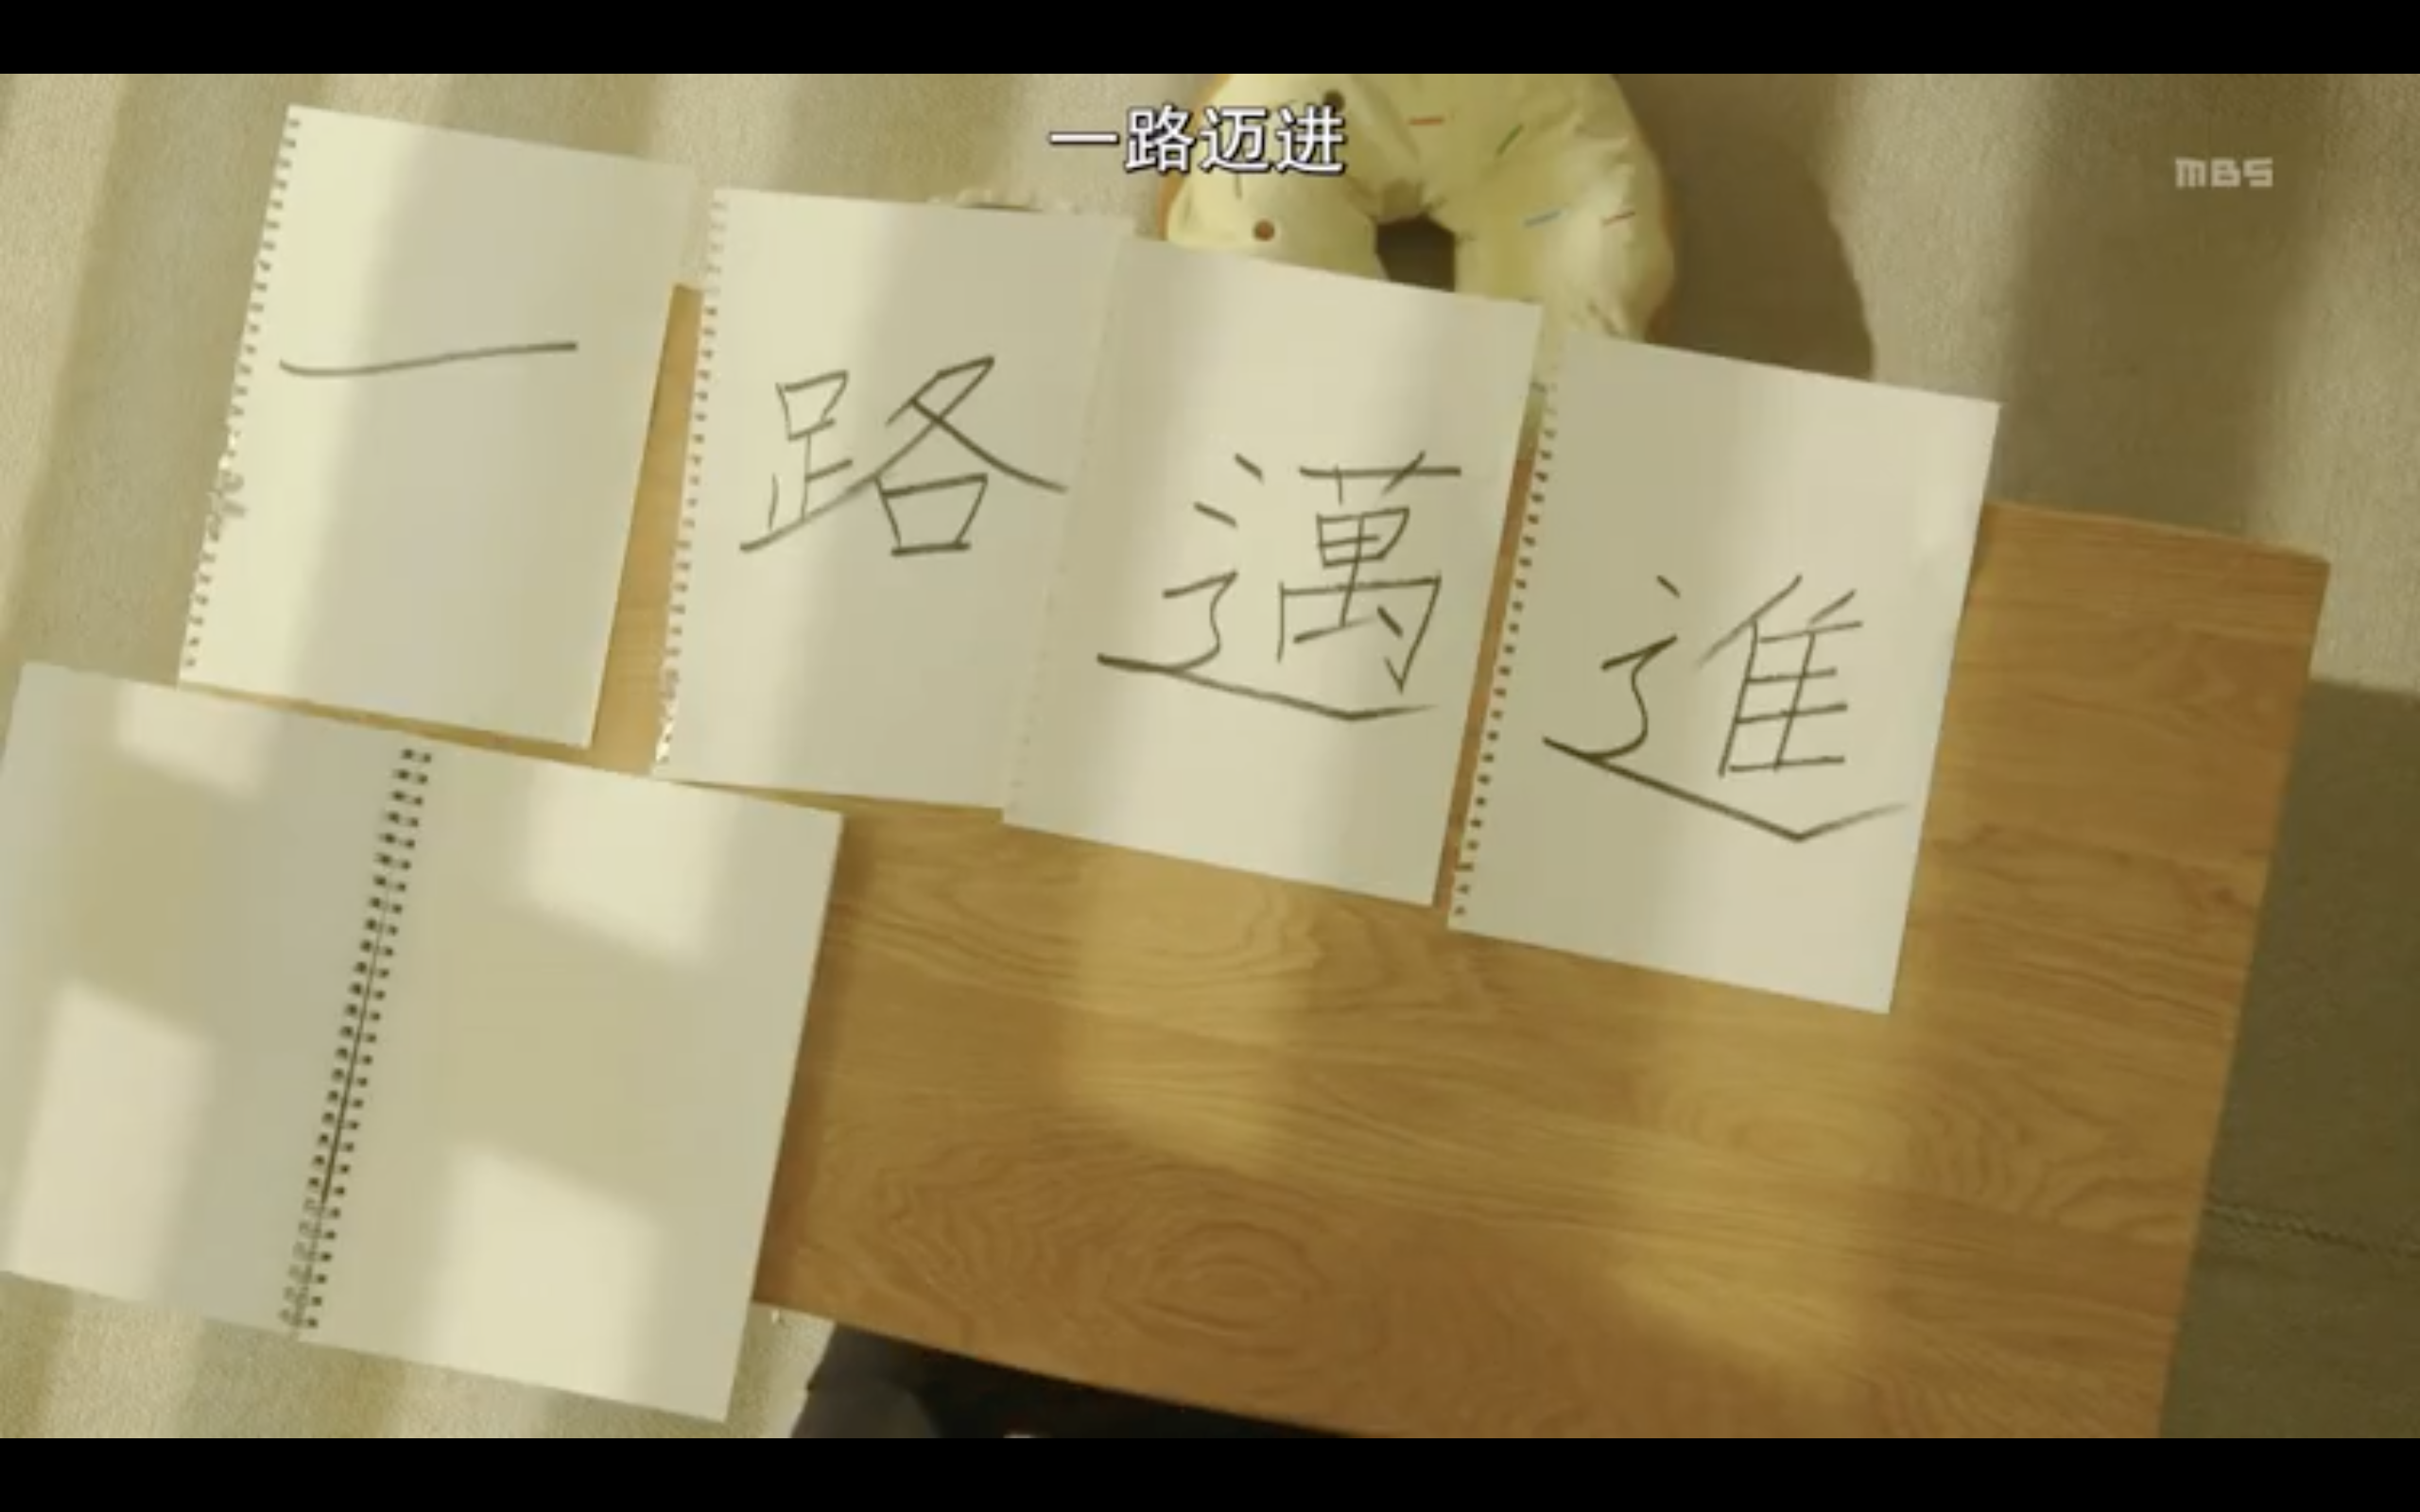 一路迈进
MBS
一
路
邁
進